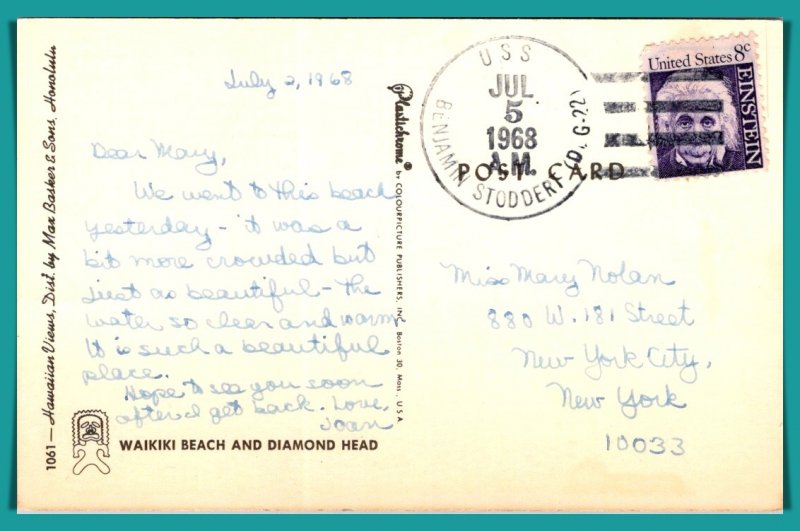 July 2, 1968
Dear Mary,
We went to this beach
yesterday - it was a
bit more crowded but
just as beautiful - the
water so clear and warm
It is such a beautiful
place.
Hope to see you soon
after I get back. Love,
Joan
WAIKIKI BEACH AND DIAMOND HEAD
1061 — Hawaiian Views, Dist. by Max Basker & Sons, Honolulu
Plastichrome ® by COLOURPICTURE PUBLISHERS, INC. Boston 30, Mass., U.S.A.
USS
JUL
5
1968
A.M.
BENJAMIN STODDERT (D G-22)
United States 8c
EINSTEIN
POST CARD
Miss Mary Nolan
880 W. 181 Street
New York City,
New York
10033